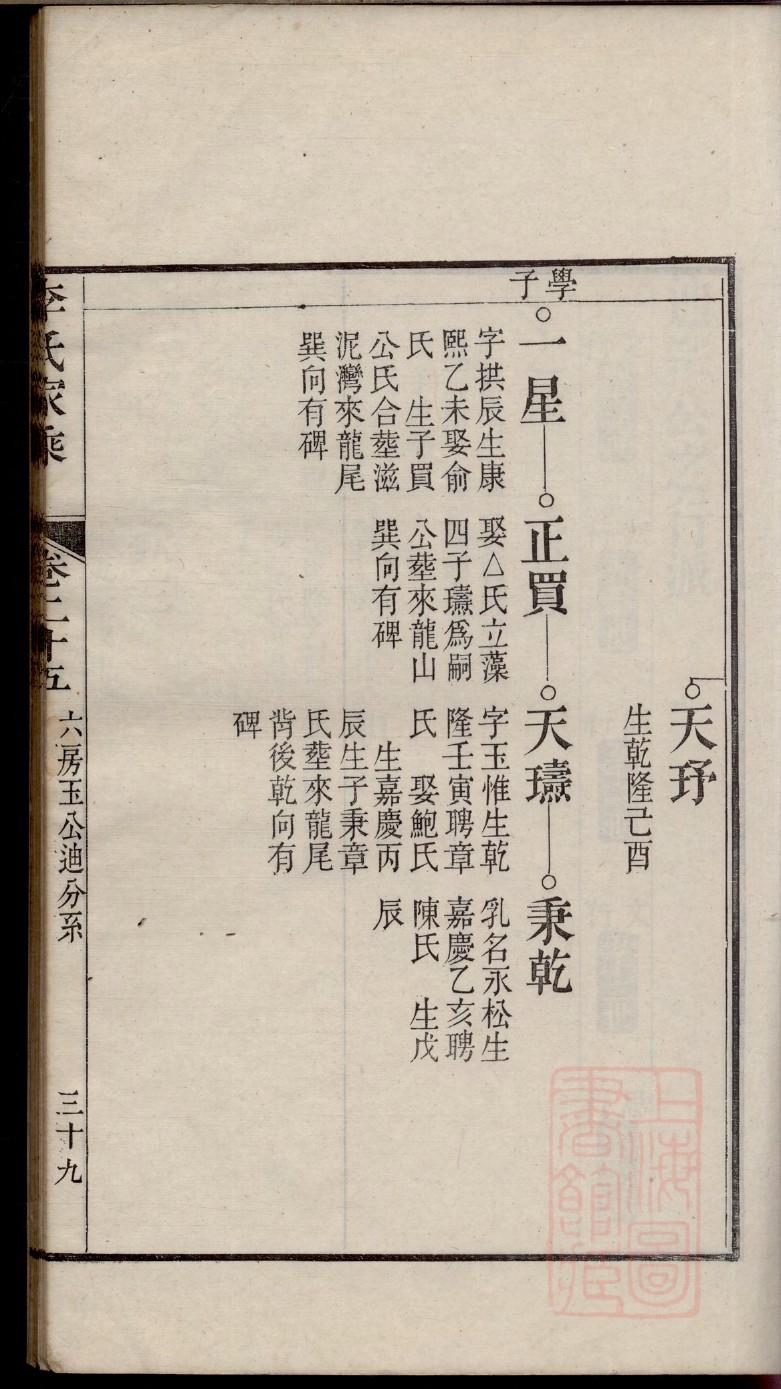 天玗
生乾隆己酉
學子
一星
字拱辰生康
熙乙未娶俞
氏　生子買
公氏合塟滋
泥灣來龍尾
巽向有碑
正買
娶△氏立藻
四子璹爲嗣
公塟來龍山
巽向有碑
天璹
字玉惟生乾
隆壬寅聘章
氏　娶鮑氏
生嘉慶丙
辰生子秉章
氏塟來龍尾
背後乾向有
碑
秉乾
乳名永松生
嘉慶乙亥聘
陳氏　生戊
辰
李氏家乘
卷二十五
六房玉公迪分系
三十九
上海圖
書館藏